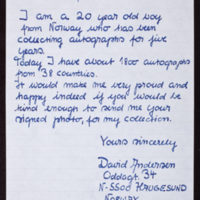 I am a 20 year old boy
from Norway who has been
collecting autographs for five
years.
Today I have about 1800 autographs
from 38 countries.
It would make me very proud and
happy indeed if you would be
kind enough to send me your
signed photo, for my collection.
Yours sincerely
David Andersen
Oddagt. 34
N-5500 HAUGESUND
NORWAY